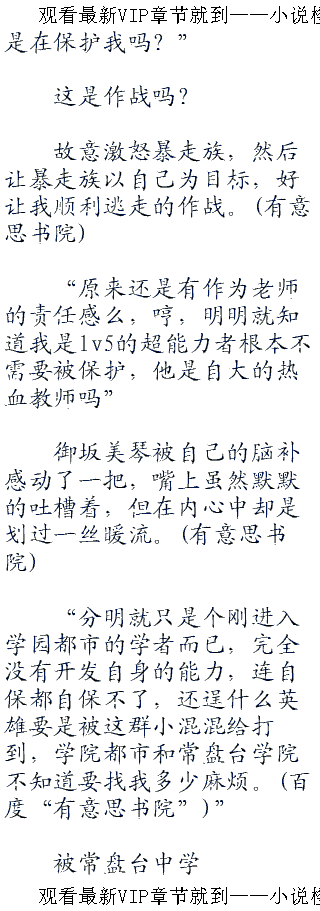 观看最新VIP章节就到——小说楼
是在保护我吗？”
这是作战吗？
故意激怒暴走族，然后
让暴走族以自己为目标，好
让我顺利逃走的作战。(有意
思书院)
“原来还是有作为老师
的责任感么，哼，明明就知
道我是lv5的超能力者根本不
需要被保护，他是自大的热
血教师吗”
御坂美琴被自己的脑补
感动了一把，嘴上虽然默默
的吐槽着，但在内心中却是
划过一丝暖流。(有意思书
院)
“分明就只是个刚进入
学园都市的学者而已，完全
没有开发自身的能力，连自
保都自保不了，还逞什么英
雄要是被这群小混混给打
到，学院都市和常盘台学院
不知道要找我多少麻烦。(百
度“有意思书院”)”
被常盘台中学
观看最新VIP章节就到——小说楼